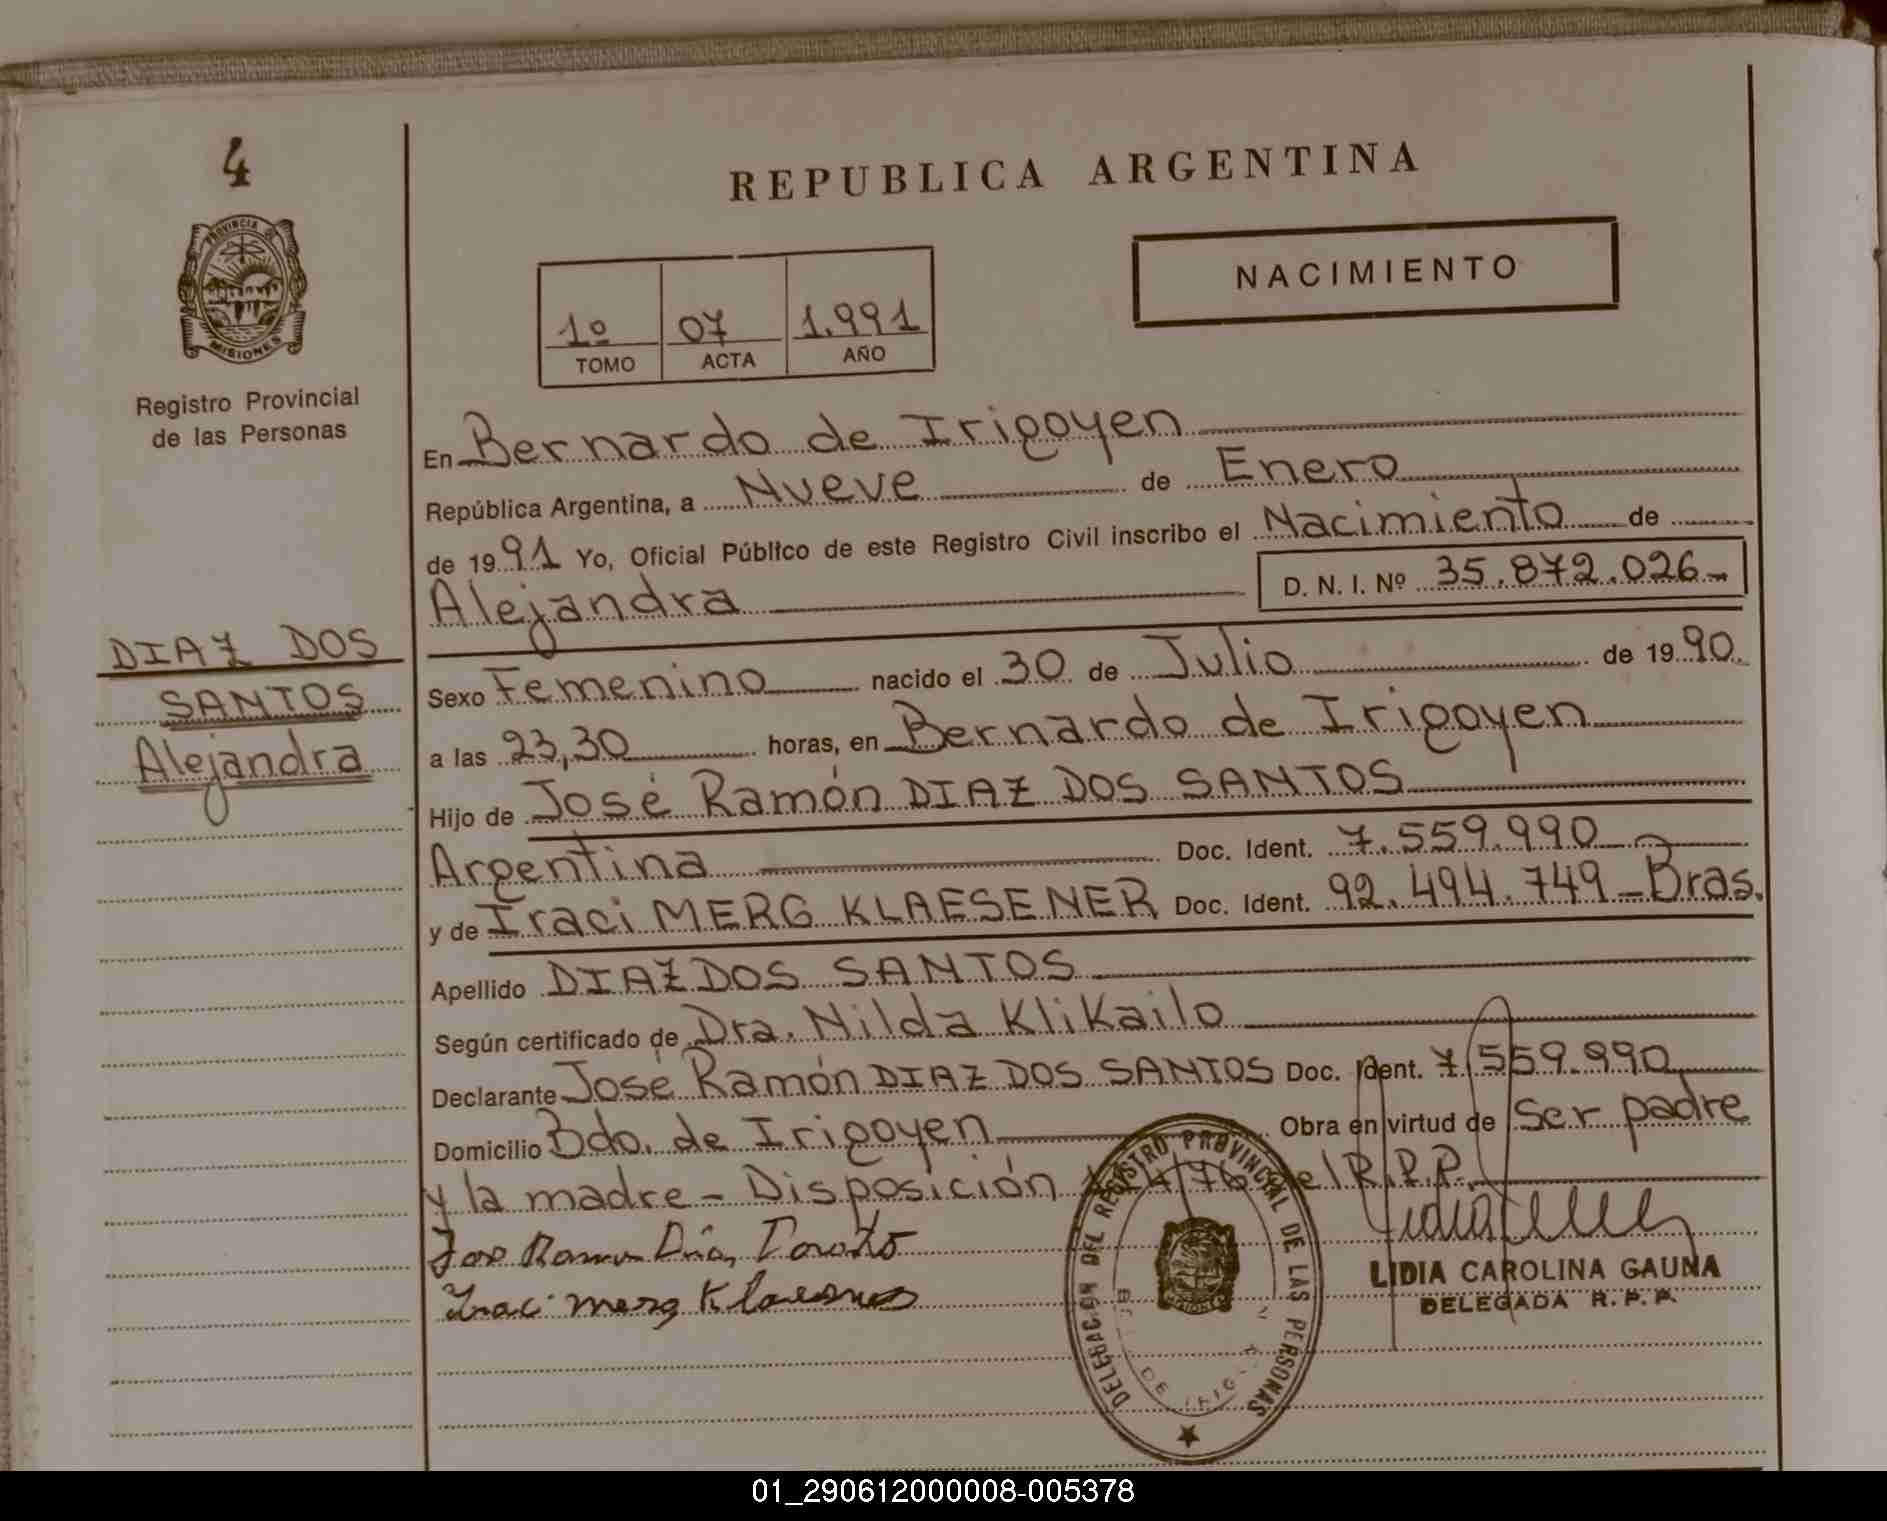 4
REPUBLICA ARGENTINA
PROVINCIA DE
MISIONES
NACIMIENTO
1º 07 1.991
TOMO ACTA AÑO
Registro Provincial
de las Personas
En Bernardo de Irigoyen
República Argentina, a Nueve de Enero
de 1991 Yo, Oficial Público de este Registro Civil inscribo el Nacimiento de
Alejandra D. N. I. Nº 35.872.026
DIAZ DOS
SANTOS
Alejandra
Sexo Femenino nacido el 30 de Julio de 1990.
a las 23,30 horas, en Bernardo de Irigoyen
Hijo de José Ramón DIAZ DOS SANTOS
Argentina Doc. Ident. 7.559.990
y de Iraci MERG KLAESENER Doc. Ident. 92.494.749 - Bras.
Apellido DIAZ DOS SANTOS
Según certificado de Dra. Nilda Klikailo
Declarante José Ramón DIAZ DOS SANTOS Doc. Ident. 7.559.990
Domicilio Bdo. de Irigoyen Obra en virtud de Ser padre
y la madre - Disposición del R.P.P.
DELEGACION DEL REGISTRO PROVINCIAL DE LAS PERSONAS
Iraci Merg
LIDIA CAROLINA GAUNA
DELEGADA R. P. P.
01_290612000008-005378